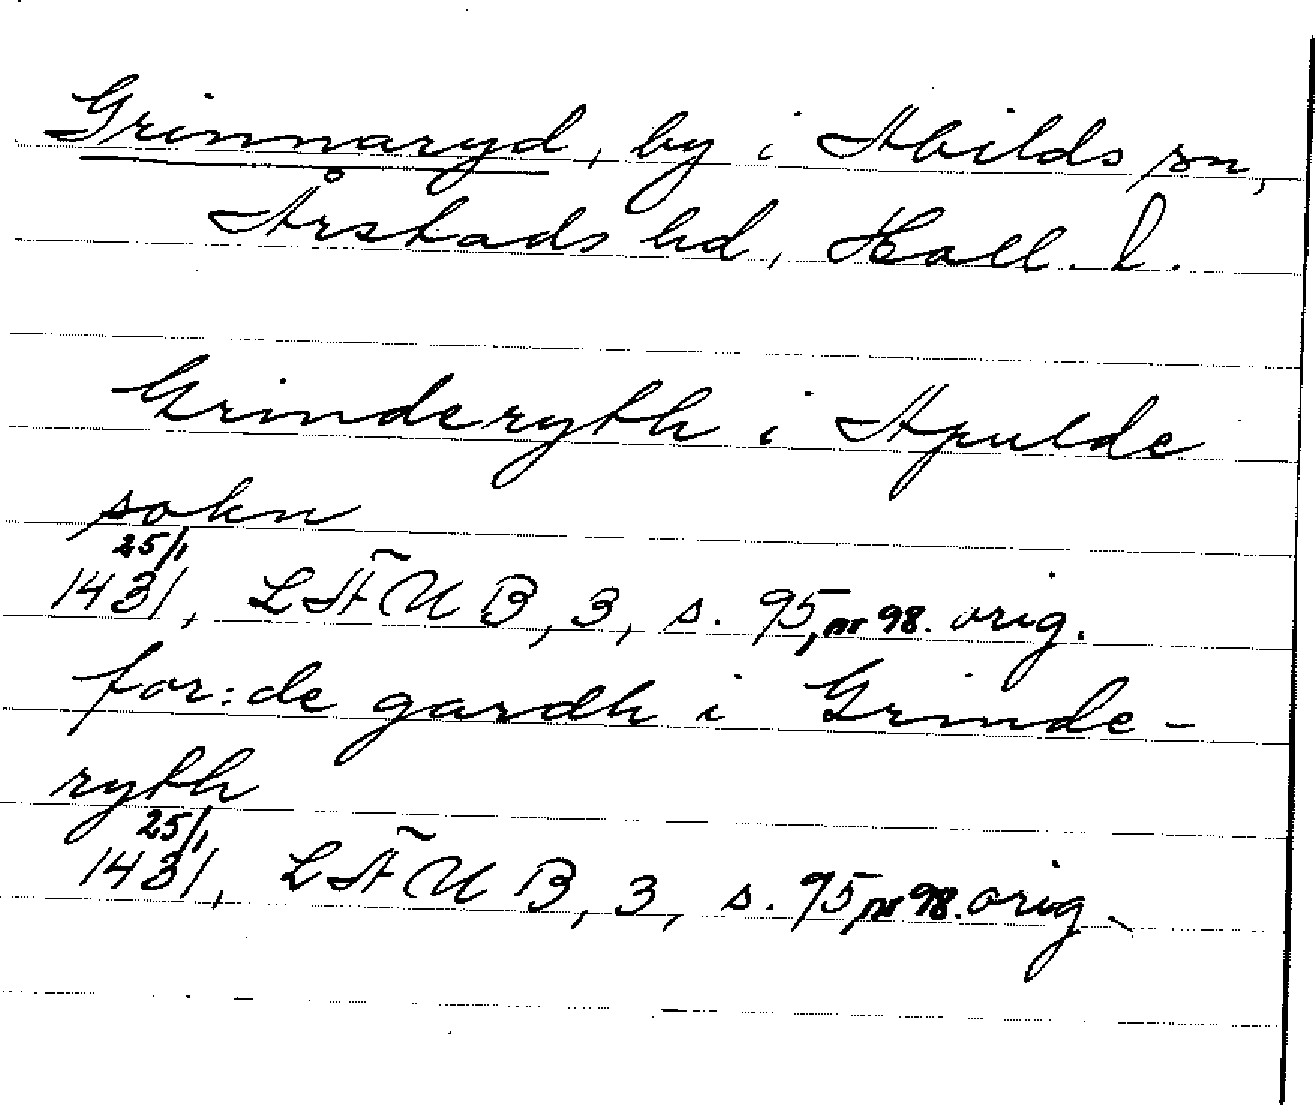 Grinnaryd, by i Abilds sn,
Årstads hd, Hall. l.
Grinderyth i Apulde
sokn
25/1
1431, LÄUB, 3, s. 95, nr 98. orig.
for:de gardh i Grinde-
ryth
25/1
1431, LÄUB, 3, s. 95, nr 98. orig.